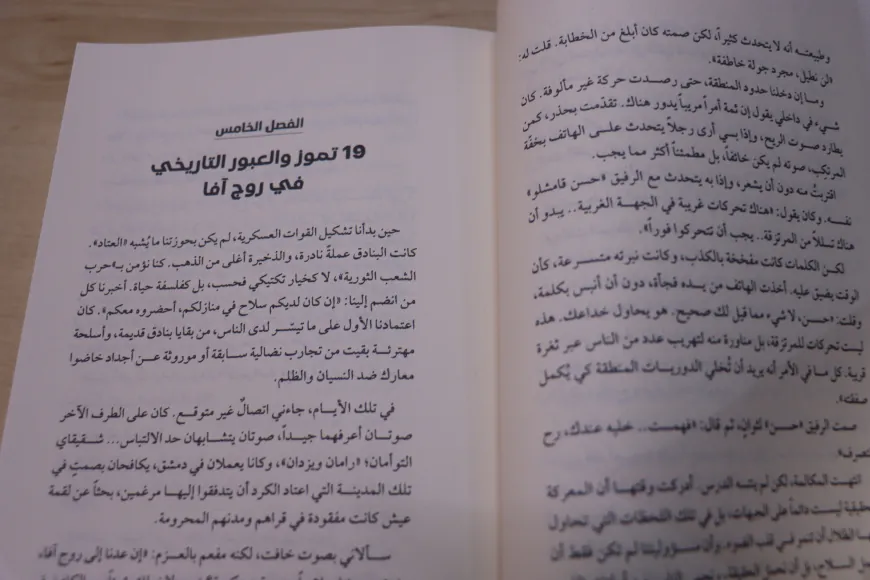 وطبيعتـه أنه لا يتحدث كثيراً، لكن صمته كان أبلغ من الخطابة. قلت له:
«لن نطيل، مجرد جولة خاطفة».
ومـا إن دخلنا حدود المنطقة، حتى رصـدت حركة غير مألوفة. كان
شيء في داخلي يقول إن ثمة أمراً مريباً يدور هناك. تقدّمت بحذر، كمن
يطارد صوت الريح، وإذا بي أرى رجلاً يتحدث علـى الهاتف بخفّة
المرتكِب، صوته لم يكن خائفاً، بل مطمئناً أكثر مما يجب.
اقتربتُ منه دون أن يشعر، وإذا به يتحدث مع الرفيق «حسن قامشلو»
نفسه. وكان يقول: «هناك تحركات غريبة في الجهة الغربية.. يبدو أن
هناك تسللاً من المرتزقة.. يجب أن تتحركوا فوراً».
لكـن الكلمات كانت مفخخة بالكذب، وكانت نبرته متسـرعة، كأن
الوقت يضيق عليه. أخذت الهاتف من يـده فجأة، دون أن أنبس بكلمة،
وقلت: «حسن، لا شيء مما قيل لك صحيح. هو يحاول خداعك. هذه
ليست تحركات للمرتزقة، بل مناورة منه لتهريب عدد من الناس عبر ثغرة
قريبة. كل ما في الأمر أنه يريد أن تُخلي الدوريات المنطقة كي يُكمل
صفقته».
صمت الرفيق «حسن» لثوانٍ، ثم قال: «فهمت.. خليه عندك، رح
نتصرف».
انتهت المكالمة، لكن لم ينته الدرس. أدركت وقتها أن المعركة
الحقيقية ليست دائماً على الجبهات، بل في تلك اللحظات التي تحاول
فيها الظلال أن تتستر في قلب الضوء. وأن مسؤوليتنا لم تكن فقط أن
نحمل السلاح، بل أن نحمل
الفصل الخامس
19 تموز والعبور التاريخي
في روج آفا
حين بدأنا تشكيل القوات العسكرية، لم يكن بحوزتنا ما يُشبه «العتاد».
كانت البنادق عملةً نادرة، والذخيرة أغلى من الذهب. كنا نؤمن بـ«حرب
الشعب الثورية»، لا كخيار تكتيكي فحسب، بل كفلسفة حياة. أخبرنا كل
من انضم إلينا: «إن كان لديكم سلاح في منازلكم، أحضروه معكم». كان
اعتمادنا الأول على ما تيسّر لدى الناس، من بقايا بنادق قديمة، وأسلحة
مهترئة بقيت من تجارب نضالية سـابقة أو موروثة عـن أجداد خاضوا
معارك ضد النسيان والظلم.
في تلك الأيـام، جاءني اتصالٌ غير متوقع. كان على الطرف الآخر
صوتـان أعرفهما جيـداً، صوتان يتشـابهان حد الالتباس... شـقيقاي
التوأمان؛ «رامان ويزدان»، وكانا يعملان في دمشق، يكافحان بصمتٍ في
تلك المدينـة التي اعتاد الكرد أن يتدفقوا إليهـا مرغمين، بحثاً عن لقمة
عيش كانت مفقودة في قراهم ومدنهم المحرومة.
سـألاني بصوت خافت، لكنه مفعم بالعزم: «إن عدنا إلى روج آفا،